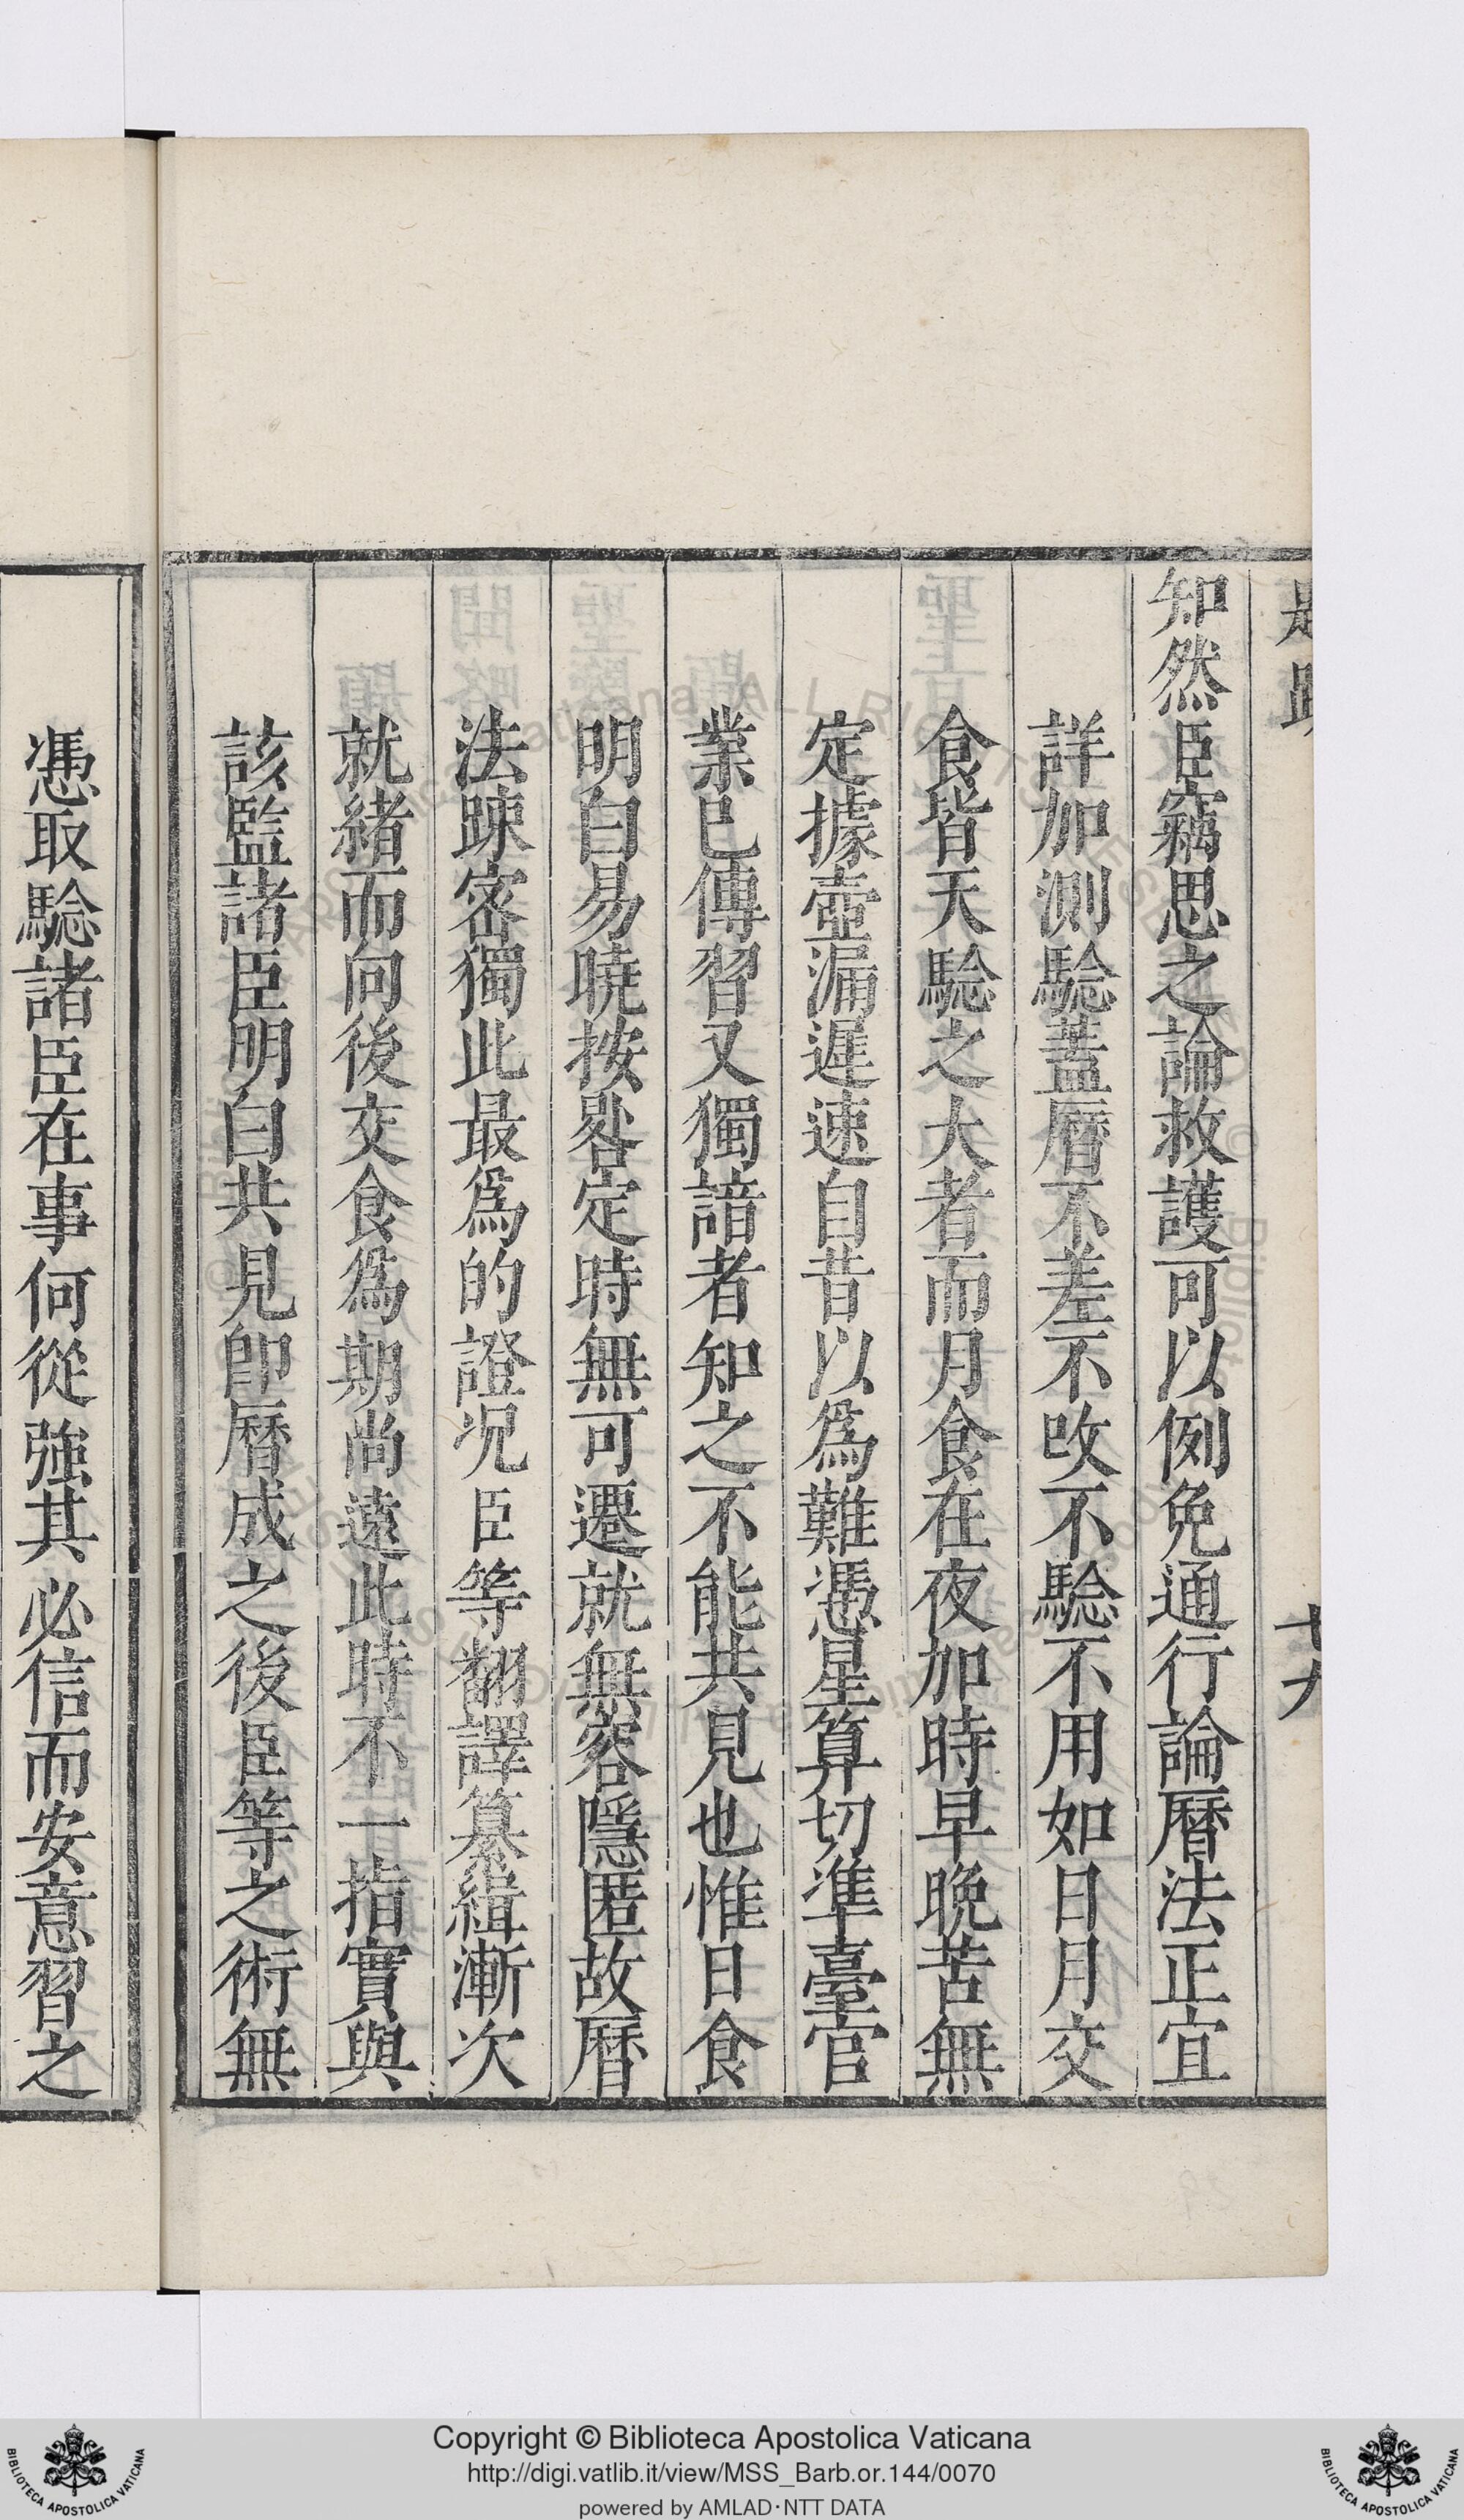 知然臣竊思之論救護可以例免通行論曆法正宜
詳加測驗蓋曆不差不改不驗不用如日月交
食皆天驗之大者而月食在夜加時早晚苦無
定據壺漏遲速自昔以爲難憑星算切準臺官
業已傳習又獨諳者知之不能共見也惟日食
明白易曉按晷定時無可遷就無容隱匿故曆
法踈密獨此最爲的證况臣等翻譯纂緝漸次
就緒而向後交食爲期尚遠此時不一指實與
該監諸臣明白共見卽曆成之後臣等之術無
憑取驗諸臣在事何從強其必信而安意習之
Copyright © Biblioteca Apostolica Vaticana
http://digi.vatlib.it/view/MSS_Barb.or.144/0070
powered by AMLAD·NTT DATA
BIBLIOTECA APOSTOLICA VATICANA
BIBLIOTECA APOSTOLICA VATICANA